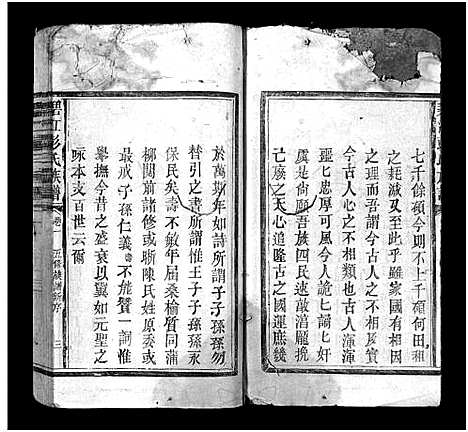 七千餘碩今則不上千碩何田租
之耗減又至此乎雖家國有相因
之理然亦今古人之不相及實
今古人心之不相類也古人渾渾
噩噩忠厚可風今人詭詐奸
虞是尚願吾族四民速敦澆龐挽
已廢之天心追隆古之國運庶幾
於萬斯年如詩所謂子子孫孫勿
替引之書所謂惟王子子孫孫永
保民矣壽不敏年屆桑榆質同蒲
柳閱前諸修或淅陳氏姓原委或
最戒子孫仁義不能贊一詞惟
舉撫今昔之盛衰以冀如元聖之
咏本支百世云爾
碧江彭氏族譜
卷一
五修族譜新序
三